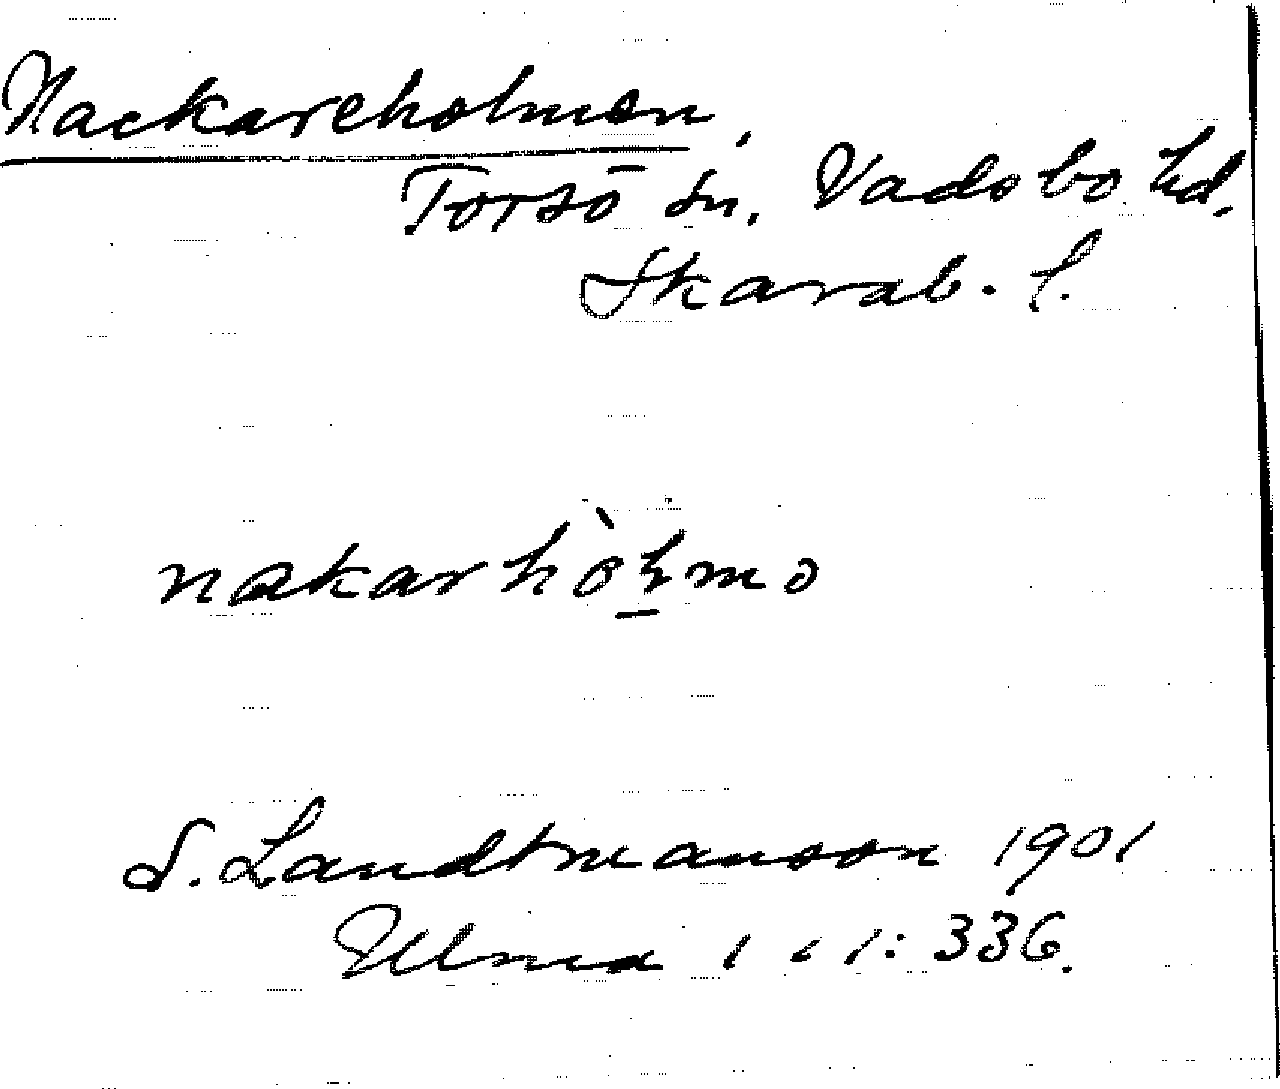 Nackareholmen,
Torsö sn, Vadsbo hd,
Skarab. l.
S. Landtmanson 1901
Ulma 1 : 336.